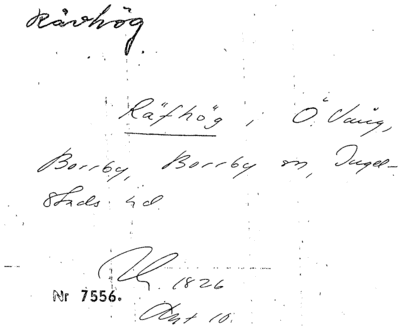 Rävhög
Räfhög i Ö. Vång,
Borrby, Borrby sn, Ingel-
stads hd
1826
Nr 7556.
Akt 10.